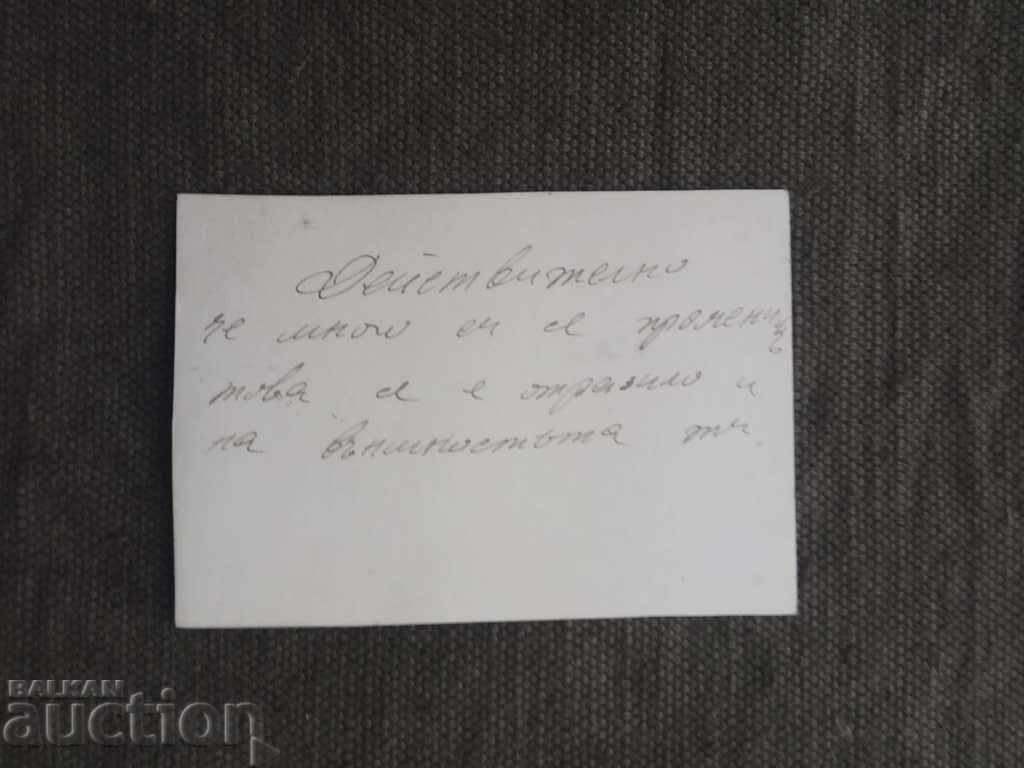 Действително
че много си се променил
това се е отразило и
на външностьта ти.
BALKAN
auction